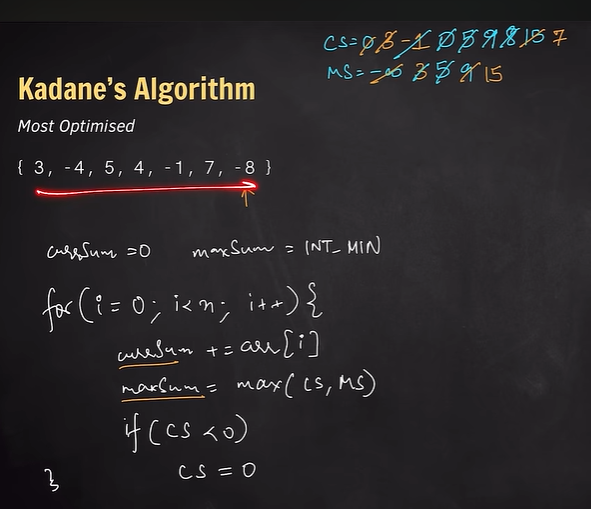 CS = 0 3 -1 0 5 9 8 15 7
MS = -∞ 3 5 9 15
Kadane's Algorithm
Most Optimised
{ 3, -4, 5, 4, -1, 7, -8 }
currSum = 0 maxSum = INT_MIN
for(i = 0; i < n; i++) {
currSum += arr[i]
maxSum = max(CS, MS)
if (CS < 0)
CS = 0
}